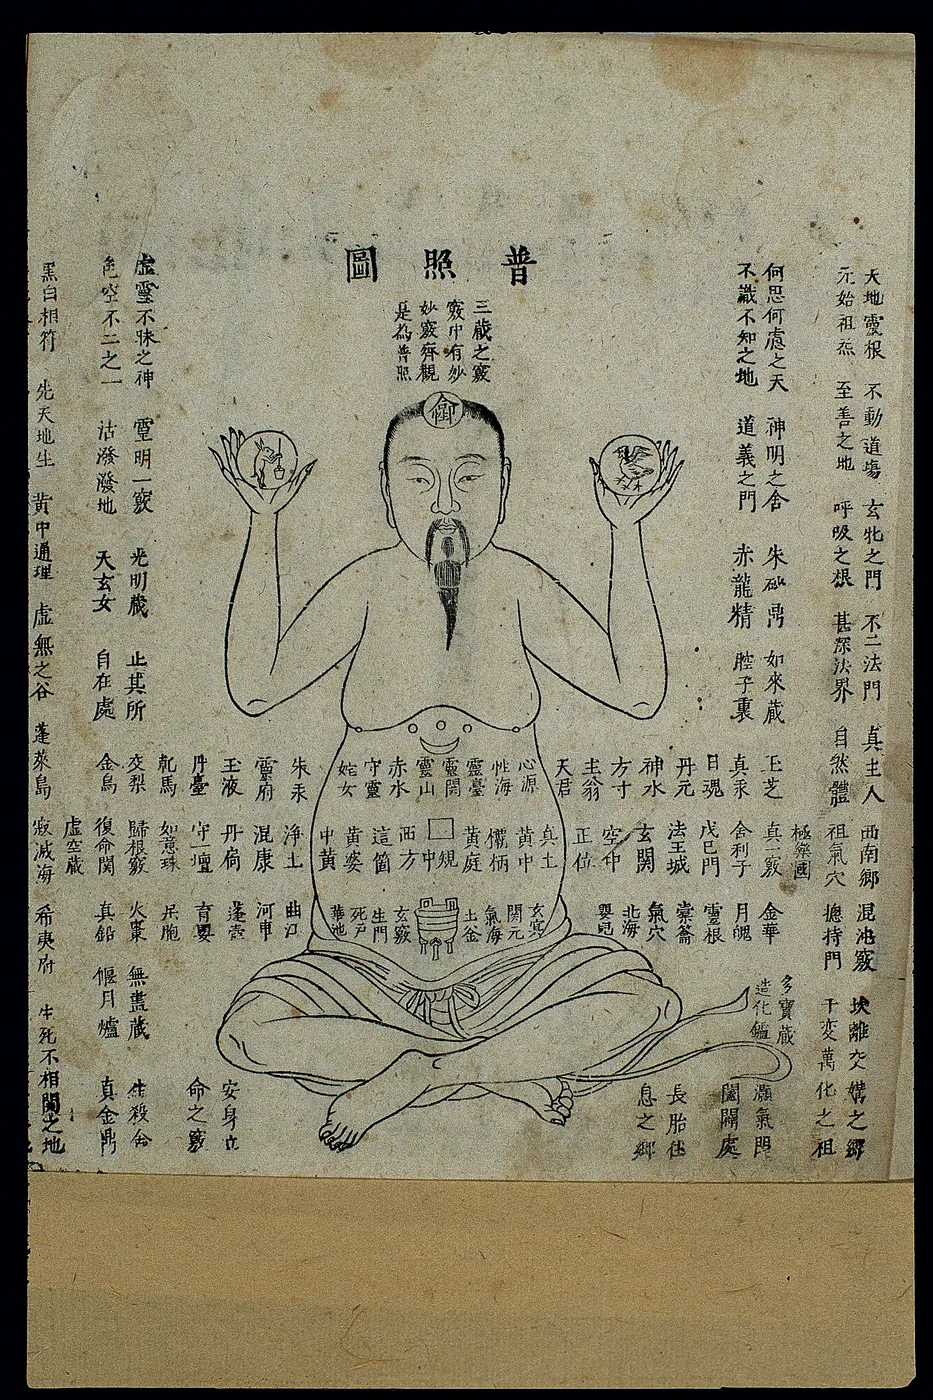 普照圖
三藏之竅
竅中有妙
妙竅齊觀
是為普照
天地靈根 不動道場 玄牝之門 不二法門 真主人 西南鄉 混沌竅 坎離交媾之鄉
元始祖炁 至善之地 呼吸之根 甚深法界 自然體 祖氣穴 總持門 千變萬化之祖
極樂國
何思何慮之天 神明之舍 朱砂鼎 如來藏 玉芝 真一竅 金華 多寶藏 灝氣門
不識不知之地 道義之門 赤龍精 腔子裏 真汞 金利子 月魄 造化鑪 闔闢處
日魂 戊巳門 靈根
丹元 法王城 橐籥 長胎住
神水 玄關 氣穴 息之鄉
方寸 空中 北海
主翁 正位 嬰兒
天君
心源 真土 玄冥
性海 黃中 關元
靈臺 欛柄 氣海
靈關 黃庭 土釜
靈山 規中
赤水 西方 玄竅
守靈 這箇 生門
姹女 黃婆 死戶
中黃 華池
朱汞 淨土 曲江
靈府 混康 河車
玉液 丹扃 蓬壺 安身立
丹臺 守一壇 育嬰 命之竅
乾馬 如意珠 呆胞
虛靈不昧之神 靈明一竅 光明藏 止其所 交梨 歸根竅 火棗 無盡藏 生殺舍
色空不二之一 活潑潑地 天玄女 自在處 金烏 復命關 真鉛 偃月爐 真金鼎
虛空藏
黑白相符 先天地生 黃中通理 虛無之谷 蓬萊島 寂滅海 希夷府 生死不相關之地